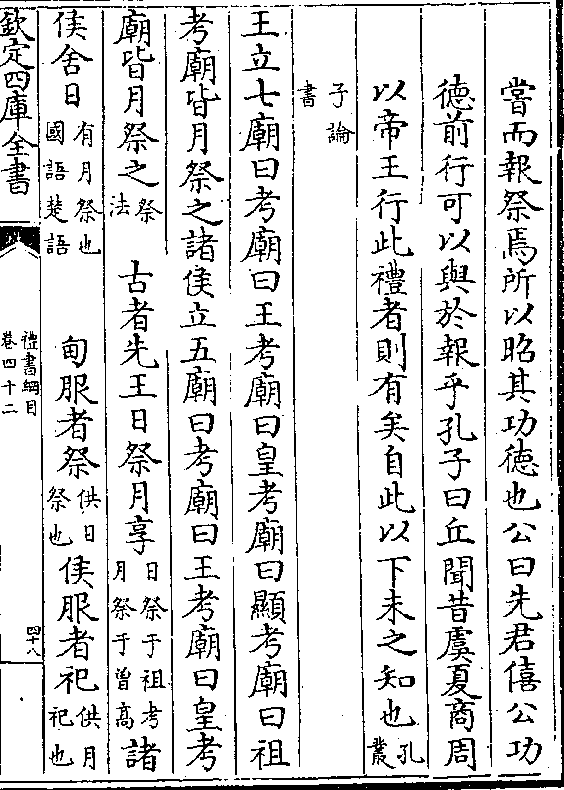 嘗而報祭焉所以昭其功德也公曰先君僖公功
德前行可以與於報乎孔子曰丘聞昔虞夏商周
以帝王行此禮者則有矣自此以下未之知也孔叢
子論書
王立七廟曰考廟曰王考廟曰皇考廟曰顯考廟曰祖
考廟皆月祭之諸侯立五廟曰考廟曰王考廟曰皇考
廟皆月祭之祭法　古者先王日祭月享日祭于祖考月祭于曾高諸
侯舍日有月祭也國語楚語　甸服者祭供日祭也侯服者祀供月祀也
欽定四庫全書　禮書綱目卷四十二　四十八